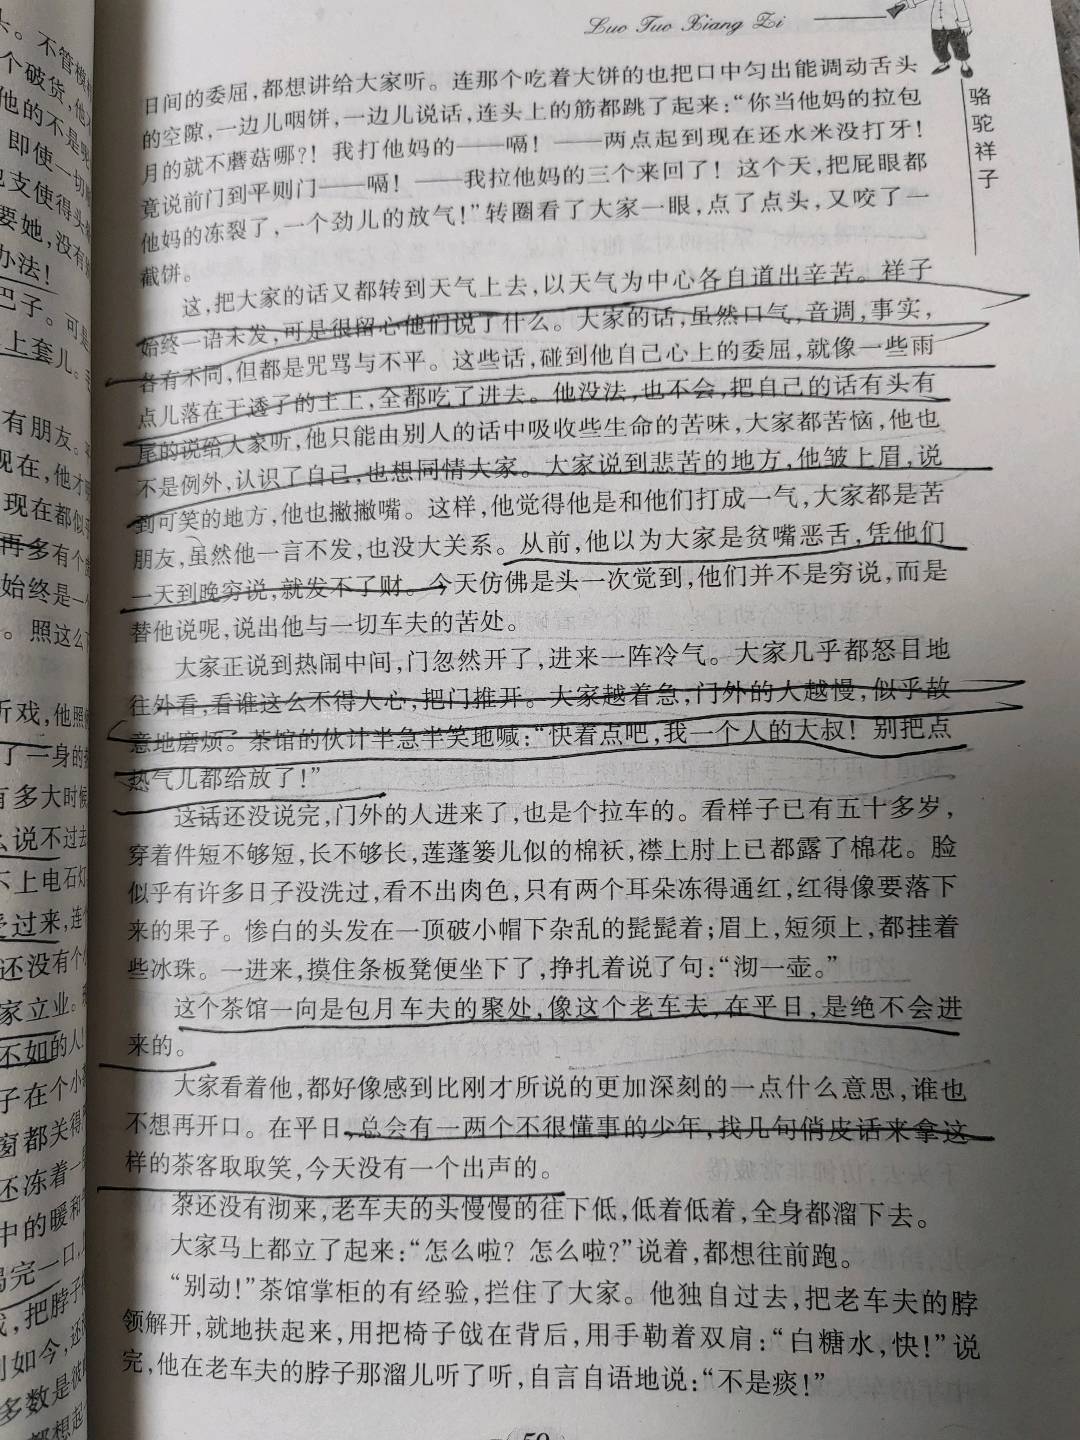 Luo Tuo Xiang Zi
骆驼祥子
日间的委屈,都想讲给大家听。连那个吃着大饼的也把口中匀出能调动舌头
的空隙,一边儿咽饼,一边儿说话,连头上的筋都跳了起来:“你当他妈的拉包
月的就不蘑菇哪?!我打他妈的——嗝!——两点起到现在还水米没打牙!
竟说前门到平则门——嗝!——我拉他妈的三个来回了!这个天,把屁眼都
他妈的冻裂了,一个劲儿的放气!”转圈看了大家一眼,点了点头,又咬了一
截饼。
这,把大家的话又都转到天气上去,以天气为中心各自道出辛苦。祥子
始终一语未发,可是很留心他们说了什么。大家的话,虽然口气,音调,事实,
各有不同,但都是咒骂与不平。这些话,碰到他自己心上的委屈,就像一些雨
点儿落在干透了的土上,全都吃了进去。他没法,也不会,把自己的话有头有
尾的说给大家听,他只能由别人的话中吸收些生命的苦味,大家都苦恼,他也
不是例外,认识了自己,也想同情大家。大家说到悲苦的地方,他皱上眉,说
到可笑的地方,他也撇撇嘴。这样,他觉得他是和他们打成一气,大家都是苦
朋友,虽然他一言不发,也没大关系。从前,他以为大家是贫嘴恶舌,凭他们
一天到晚穷说,就发不了财。今天仿佛是头一次觉到,他们并不是穷说,而是
替他说呢,说出他与一切车夫的苦处。
大家正说到热闹中间,门忽然开了,进来一阵冷气。大家几乎都怒目地
往外看,看谁这么不得人心,把门推开。大家越着急,门外的人越慢,似乎故
意地磨烦。茶馆的伙计半急半笑地喊:“快着点吧,我一个人的大叔!别把点
热气儿都给放了!”
这话还没说完,门外的人进来了,也是个拉车的。看样子已有五十多岁,
穿着件短不够短,长不够长,莲蓬篓儿似的棉袄,襟上肘上已都露了棉花。脸
似乎有许多日子没洗过,看不出肉色,只有两个耳朵冻得通红,红得像要落下
来的果子。惨白的头发在一顶破小帽下杂乱的髭髭着;眉上,短须上,都挂着
些冰珠。一进来,摸住条板凳便坐下了,挣扎着说了句:“沏一壶。”
这个茶馆一向是包月车夫的聚处,像这个老车夫,在平日,是绝不会进
来的。
大家看着他,都好像感到比刚才所说的更加深刻的一点什么意思,谁也
不想再开口。在平日,总会有一两个不很懂事的少年,找几句俏皮话来拿这
样的茶客取取笑,今天没有一个出声的。
茶还没有沏来,老车夫的头慢慢的往下低,低着低着,全身都溜下去。
大家马上都立了起来:“怎么啦?怎么啦?”说着,都想往前跑。
“别动!”茶馆掌柜的有经验,拦住了大家。他独自过去,把老车夫的脖
领解开,就地扶起来,用把椅子戗在背后,用手勒着双肩:“白糖水,快!”说
完,他在老车夫的脖子那溜儿听了听,自言自语地说:“不是痰!”